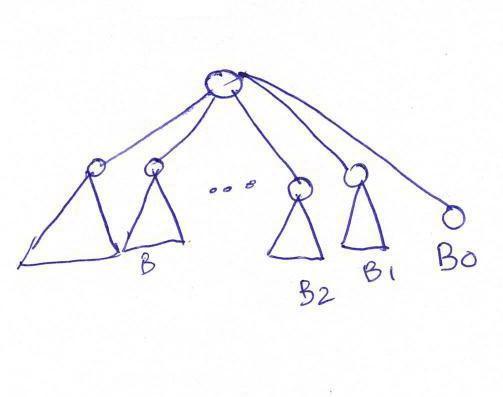 ...
B
B2
B1
B0